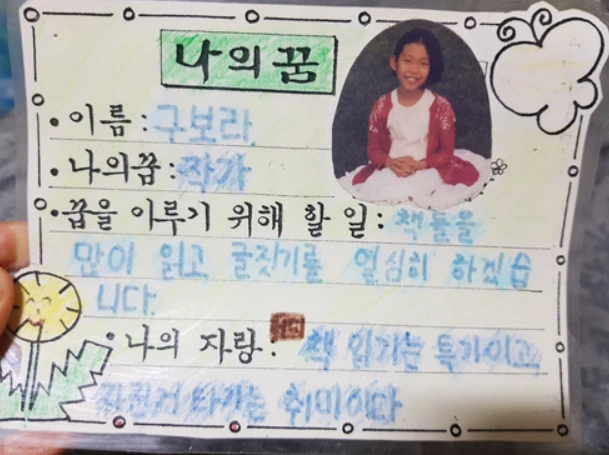 나의 꿈
• 이름 : 구보라.
• 나의꿈 : 작가
• 꿈을 이루기 위해 할 일 : 책들을
많이 읽고 글짓기를 열심히 하겠습
니다.
• 나의 자랑 : 책 읽기는 특기이고
자전거 타기는 취미이다